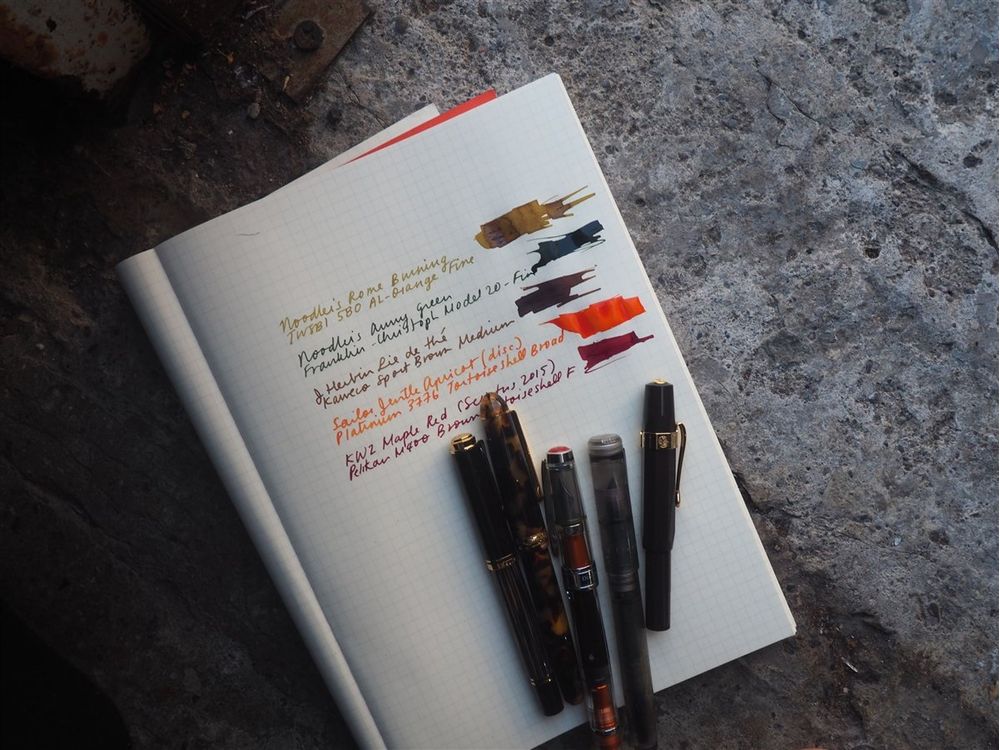 Noodler's Rome Burning
TWSBI 580 AL-Orange Fine
Noodler's Army Green
Franklin-Christoph Model 20-Fin
J Herbin Lie de thé
Kaweco Sport Brown Medium
Sailor Jentle Apricot (disc)
Platinum 3776 Tortoiseshell Broad
KWZ Maple Red (Scriptus 2015)
Pelikan M400 Brown Tortoiseshell F